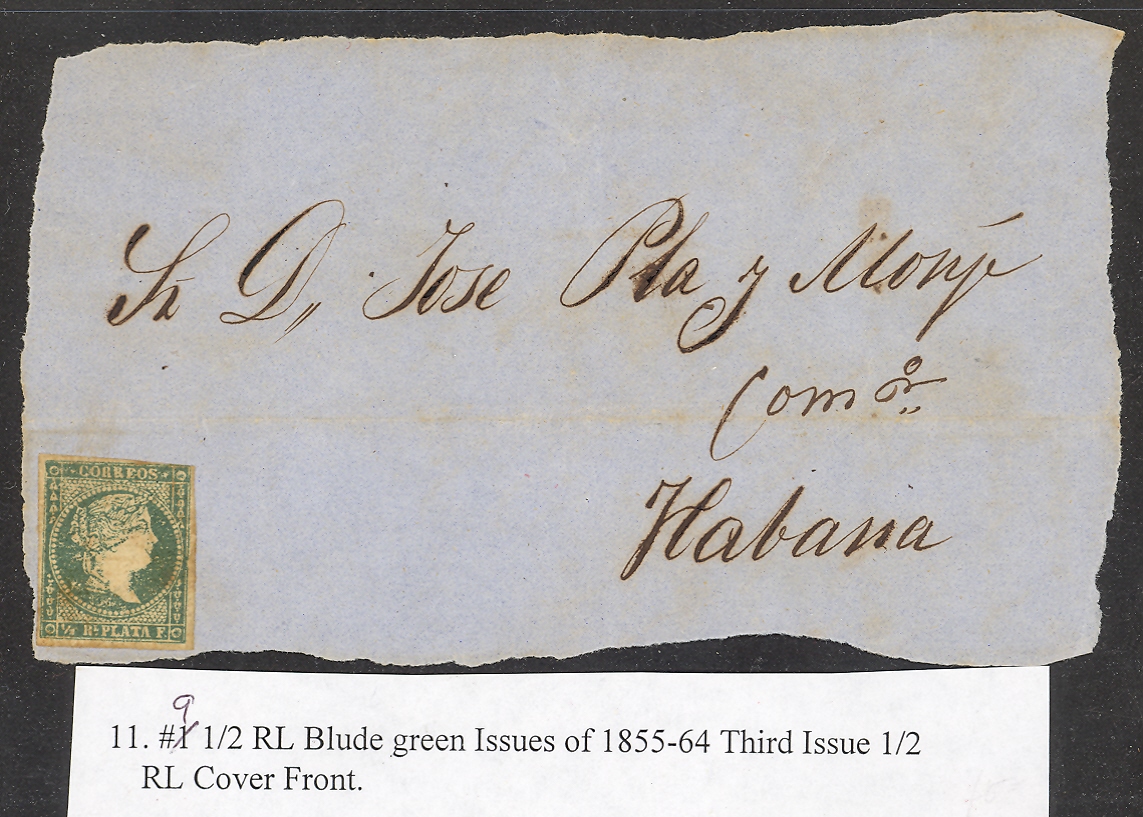 Sr D,, Jose Pla y Monje
Com or,,
Habana
CORREOS
1/2 Rl PLATA F.
9
11. #1 1/2 RL Blude green Issues of 1855-64 Third Issue 1/2
RL Cover Front.